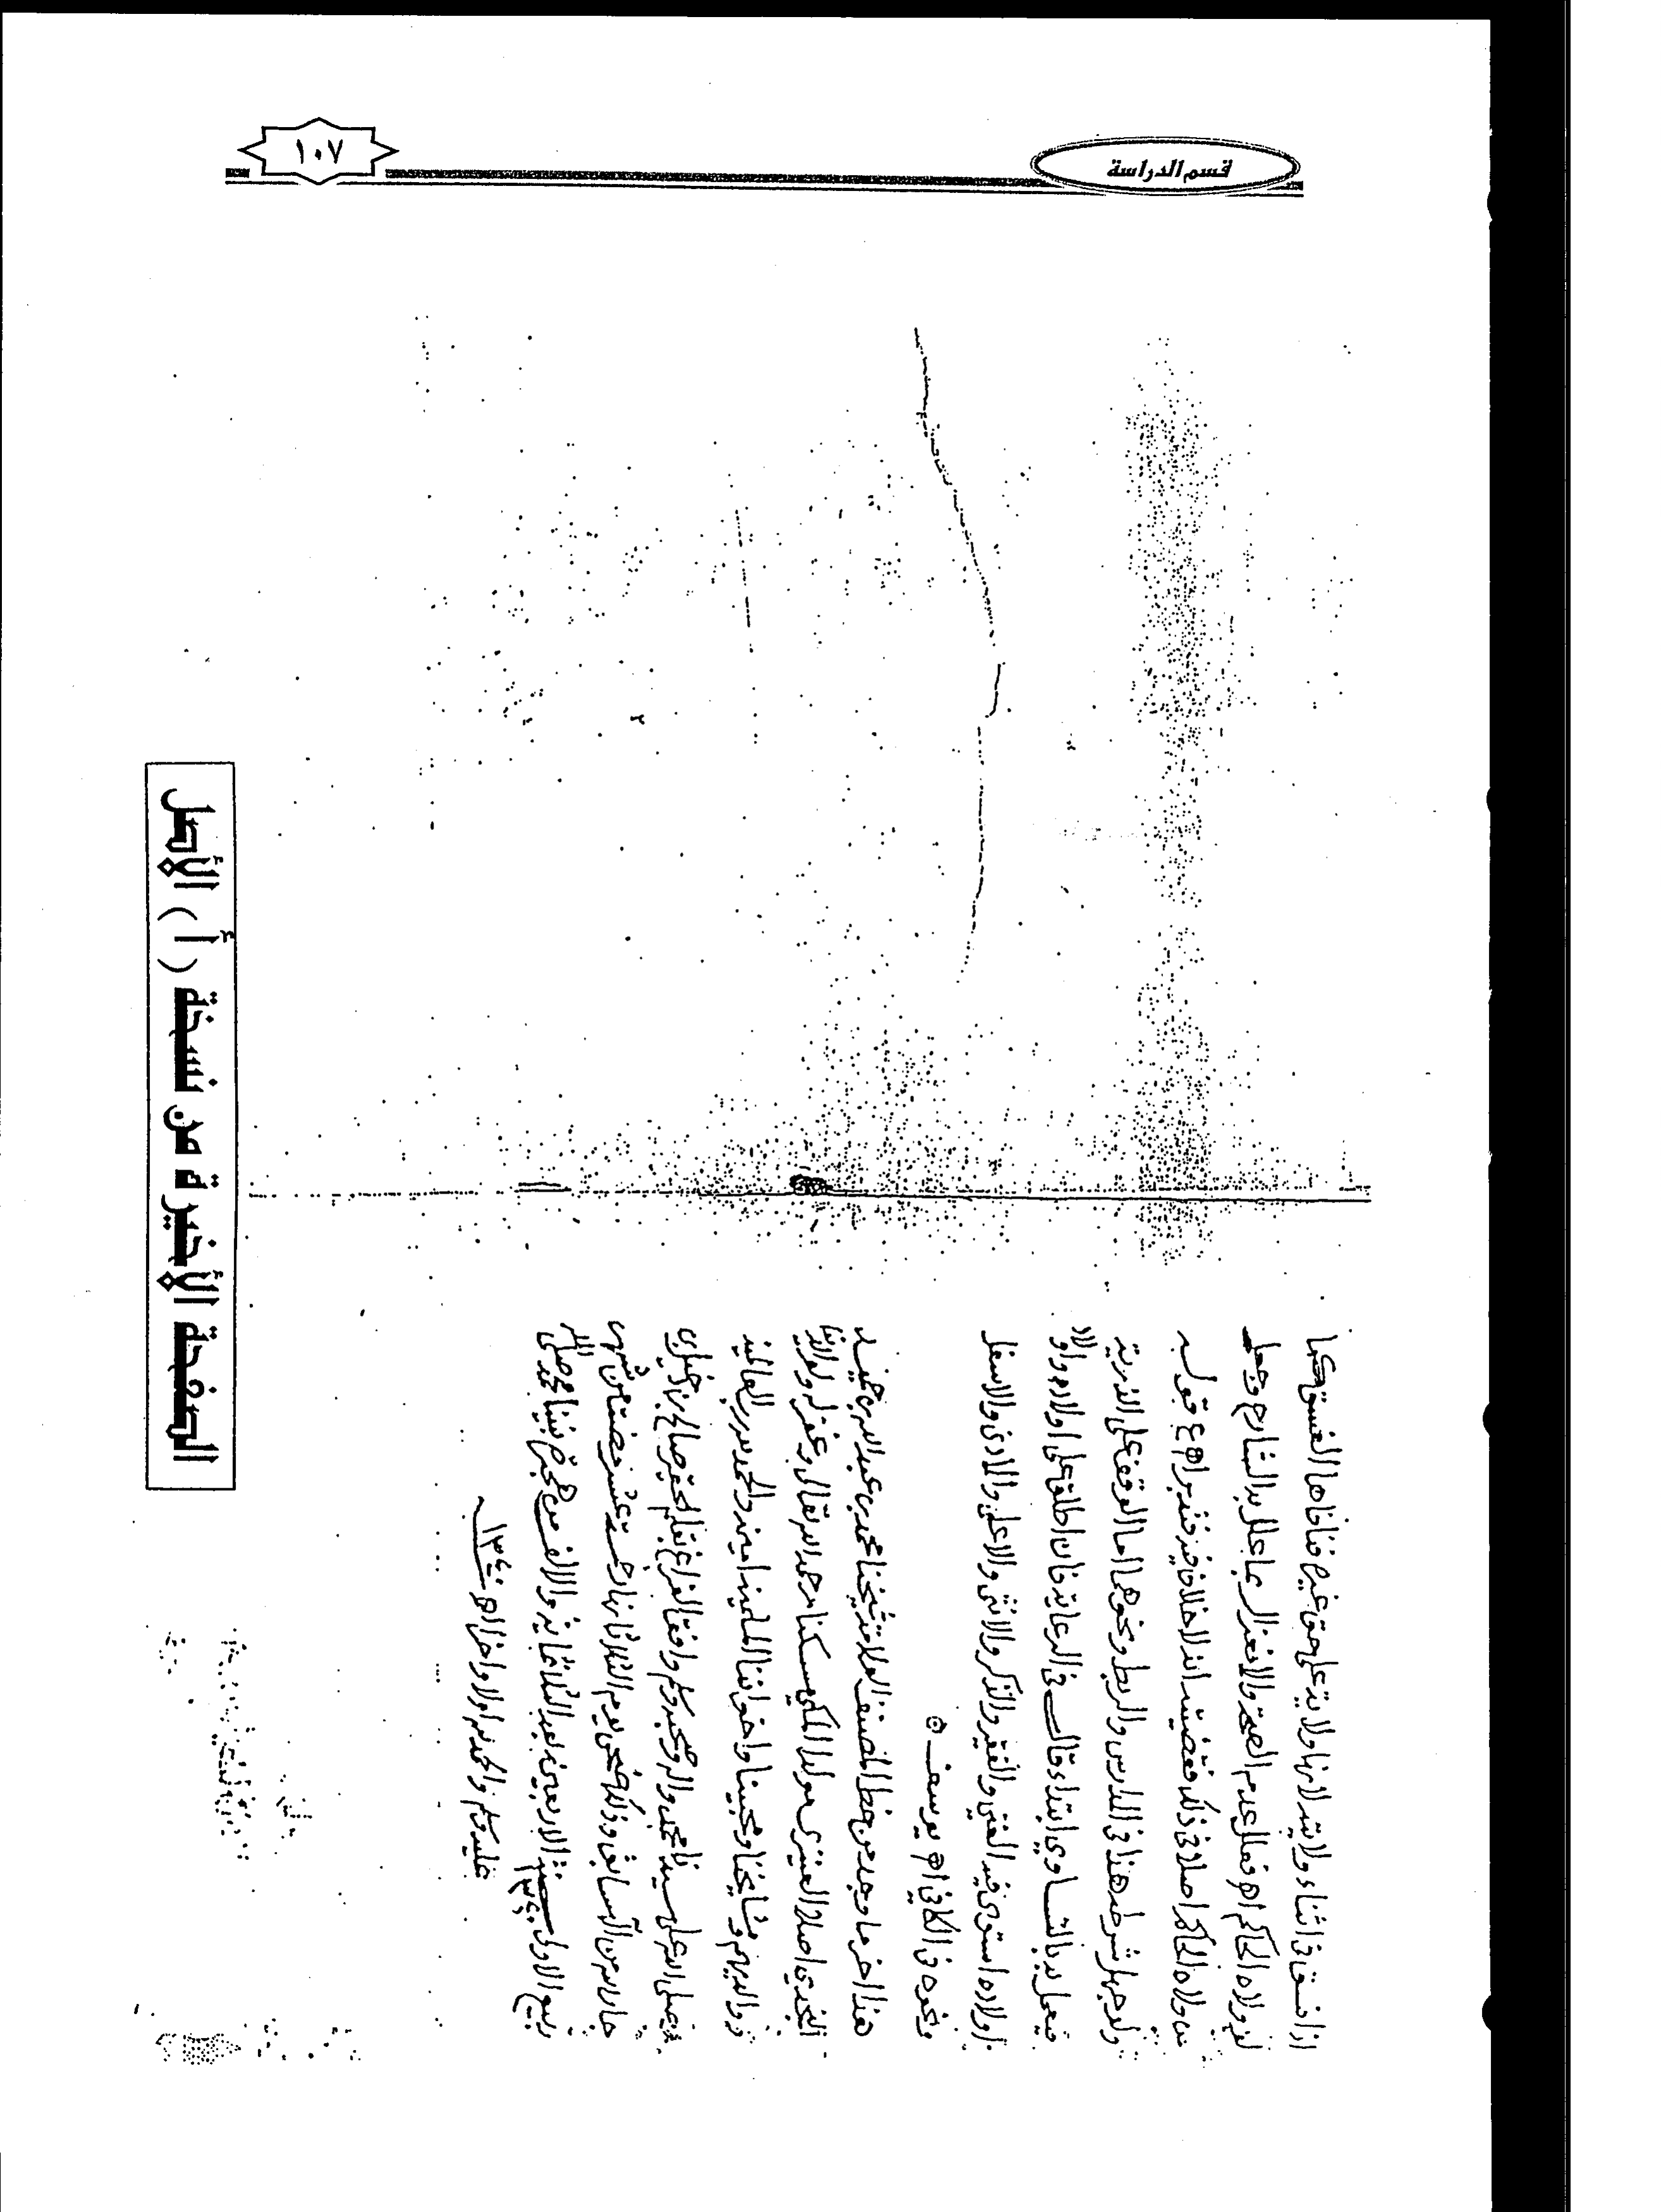 قسم الدراسة
١٠٧
إذا فسق في اثناء ولايته لانها ولاية على حق غيره فنافاها الفسق كما
لو ولاه الحاكم اه فعلل عدم الصحة والانعزال
من ولاه الحاكم اصلا في ذلك فقضيته انه لا خلاف فيه فتدبر اه ع قوله
ولو جهل شرطه هذا في المدارس والربط ونحوهما اما الوقف على الذرية
فيعمل به بالتساوي ابتداء قال في الرعاية فان اطلق على اولاده واولاد
اولاده استوى فيه الغني والفقير والذكر والانثى والاعلى والادنى والاسفل
ونحوه في الكافي اه يوسف
هذا اخر ما وجد من خط المصنف العلامة شيخنا محمد بن عبد الله بن حميد
النجدي اصلا العنيزي مولدا المكي مسكنا رحمه الله تعالى وغفر له ولوالدينا
ووالديهم ومشايخنا ومحبينا واخواننا المسلمين امين والحمد لله رب العالمين
وصلى الله على سيدنا محمد واله وصحبه وسلم وافق الفراغ بقلم الحقير صالح بن
جار الله من آل سابق وذلك ضحى يوم الثلاثا نهار خمسة عشر مضت من شهر
ربيع الاول سنة الاربعين بعد الثلاثماية والالف من هجرة نبينا محمد صلى الله
١٣٤٠
عليه وسلم والحمد لله اولا واخرا اه سنة ١٣٤٠
الصفحة الأخيرة من نسخة ( أ ) الأصل